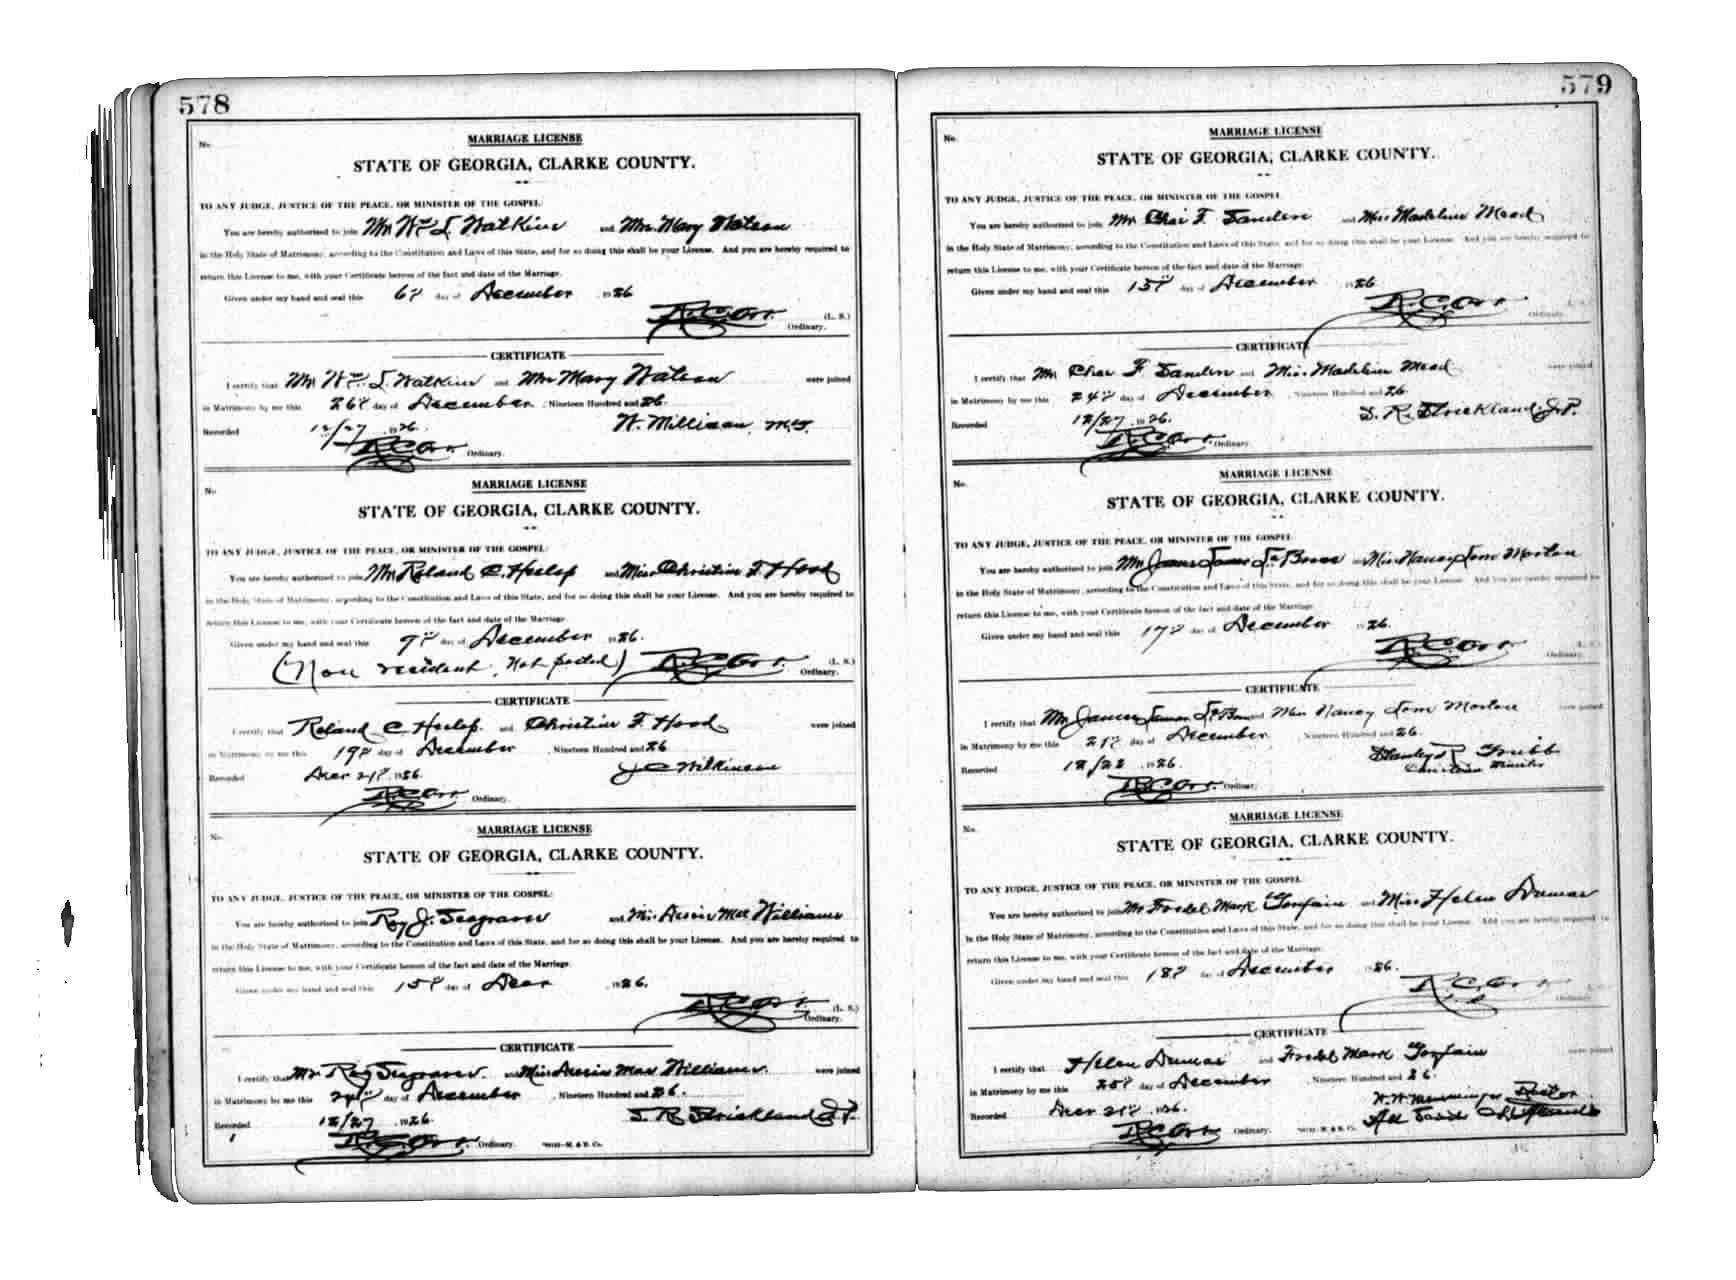 578
No.
MARRIAGE LICENSE
STATE OF GEORGIA, CLARKE COUNTY.
TO ANY JUDGE, JUSTICE OF THE PEACE, OR MINISTER OF THE GOSPEL:
You are hereby authorized to join Mr. Wm. L. Watkins and Mrs. Mary Watson
in the Holy State of Matrimony, according to the Constitution and Laws of this State, and for so doing this shall be your License. And you are hereby required to
return this License to me, with your Certificate hereon of the fact and date of the Marriage.
Given under my hand and seal this 6th day of December 1926
R.C. Orr. (L. S.)
Ordinary.
CERTIFICATE
I certify that Mr. Wm. L. Watkins and Mrs Mary Watson were joined
in Matrimony by me this 26th day of December, Nineteen Hundred and 26.
Recorded 12/27 1926. W. Millican, M.G.
R.C. Orr. Ordinary.
No.
MARRIAGE LICENSE
STATE OF GEORGIA, CLARKE COUNTY.
TO ANY JUDGE, JUSTICE OF THE PEACE, OR MINISTER OF THE GOSPEL:
You are hereby authorized to join Mr. Roland C. Heslop and Miss Christine F. Hood
in the Holy State of Matrimony, according to the Constitution and Laws of this State, and for so doing this shall be your License. And you are hereby required to
return this License to me, with your Certificate hereon of the fact and date of the Marriage.
Given under my hand and seal this 9th day of December 1926.
(Non resident, Not posted) R.C. Orr. (L. S.)
Ordinary.
CERTIFICATE
I certify that Roland C Heslop. and Christine F. Hood were joined
in Matrimony by me this 19th day of December, Nineteen Hundred and 26
Recorded Decr 21st 1926. J C Wilkinson
R.C. Orr. Ordinary.
No.
MARRIAGE LICENSE
STATE OF GEORGIA, CLARKE COUNTY.
TO ANY JUDGE, JUSTICE OF THE PEACE, OR MINISTER OF THE GOSPEL:
You are hereby authorized to join Roy J. Seagraves and Miss Mae Williams
in the Holy State of Matrimony, according to the Constitution and Laws of this State, and for so doing this shall be your License. And you are hereby required to
return this License to me, with your Certificate hereon of the fact and date of the Marriage.
Given under my hand and seal this 15th day of Decr 1926.
R.C. Orr. (L. S.)
Ordinary.
CERTIFICATE
I certify that Mr Roy Seagraves. and Miss Mae Williams. were joined
in Matrimony by me this 24th day of December, Nineteen Hundred and 26.
Recorded 12/27 1926. S. R. Strickland J.P.
R.C. Orr. Ordinary.
579
No.
MARRIAGE LICENSE
STATE OF GEORGIA, CLARKE COUNTY.
TO ANY JUDGE, JUSTICE OF THE PEACE, OR MINISTER OF THE GOSPEL:
You are hereby authorized to join Mr. Chas F. Sanders and Miss Madeline Mead
in the Holy State of Matrimony, according to the Constitution and Laws of this State, and for so doing this shall be your License. And you are hereby required to
return this License to me, with your Certificate hereon of the fact and date of the Marriage.
Given under my hand and seal this 15th day of December 1926
R.C. Orr. (L. S.)
Ordinary.
CERTIFICATE
I certify that Mr. Chas F. Sanders and Miss. Madeline Mead were joined
in Matrimony by me this 24th day of December, Nineteen Hundred and 26
Recorded 12/27 1926. S. R. Strickland, J.P.
R.C. Orr. Ordinary.
No.
MARRIAGE LICENSE
STATE OF GEORGIA, CLARKE COUNTY.
TO ANY JUDGE, JUSTICE OF THE PEACE, OR MINISTER OF THE GOSPEL:
You are hereby authorized to join Mr. James and Miss Nancy Tom Morton
in the Holy State of Matrimony, according to the Constitution and Laws of this State, and for so doing this shall be your License. And you are hereby required to
return this License to me, with your Certificate hereon of the fact and date of the Marriage.
Given under my hand and seal this 17th day of December 1926.
R.C. Orr. (L. S.)
Ordinary.
CERTIFICATE
I certify that Mr. James and Miss Nancy Tom Morton were joined
in Matrimony by me this 21st day of December, Nineteen Hundred and 26.
Recorded 12/22 1926. Stanley R Grubb
Christian Minister
R.C. Orr. Ordinary.
No.
MARRIAGE LICENSE
STATE OF GEORGIA, CLARKE COUNTY.
TO ANY JUDGE, JUSTICE OF THE PEACE, OR MINISTER OF THE GOSPEL:
You are hereby authorized to join Mr Mark and Miss Helen Dumas
in the Holy State of Matrimony, according to the Constitution and Laws of this State, and for so doing this shall be your License. And you are hereby required to
return this License to me, with your Certificate hereon of the fact and date of the Marriage.
Given under my hand and seal this 18th day of December 1926.
R.C. Orr (L. S.)
Ordinary.
CERTIFICATE
I certify that Helen Dumas and Mark were joined
in Matrimony by me this 20th day of December, Nineteen Hundred and 26.
W. W. Memminger Rector
Recorded Decr 21st 1926.
R.C. Orr Ordinary.